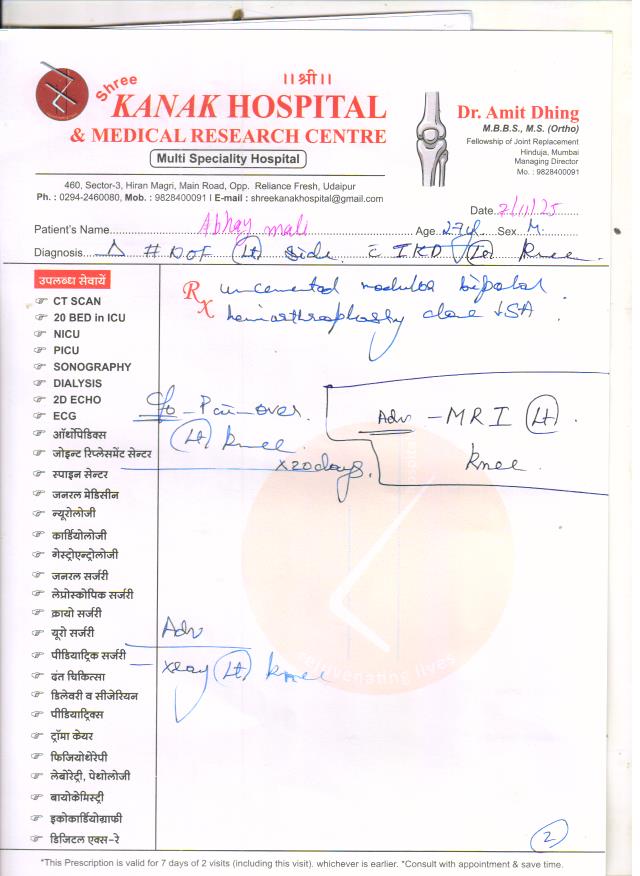 ।।श्री।।
Shree
KANAK HOSPITAL
& MEDICAL RESEARCH CENTRE
Multi Speciality Hospital
460, Sector-3, Hiran Magri, Main Road, Opp. Reliance Fresh, Udaipur
Ph. : 0294-2460080, Mob. : 9828400091 I E-mail : shreekanakhospital@gmail.com
Dr. Amit Dhing
M.B.B.S., M.S. (Ortho)
Fellowship of Joint Replacement
Hinduja, Mumbai
Managing Director
Mo. : 9828400091
Date 7/11/25
Patient's Name Abhay mali Age 27 Sex M.
Diagnosis △ # NOF (Lt) side c̄ IKD (Lt) knee.
Rx uncemented modular bipolar
hemiarthroplasty done ↓SA
c/o - Pain over
(Lt) knee
x20days.
Adv - MRI (Lt)
knee
Adv
xray (Lt) knee
उपलब्ध सेवायें
CT SCAN
20 BED in ICU
NICU
PICU
SONOGRAPHY
DIALYSIS
2D ECHO
ECG
ऑर्थोपेडिक्स
जोइन्ट रिप्लेसमेंट सेन्टर
स्पाइन सेन्टर
जनरल मेडिसीन
न्यूरोलोजी
कार्डियोलोजी
गेस्ट्रोएन्ट्रोलोजी
जनरल सर्जरी
लेप्रोस्कोपिक सर्जरी
क्रायो सर्जरी
यूरो सर्जरी
पीडियाट्रिक सर्जरी
दंत चिकित्सा
डिलेवरी व सीजेरियन
पीडियाट्रिक्स
ट्रॉमा केयर
फिजियोथेरेपी
लेबोरेट्री, पेथोलोजी
बायोकेमिस्ट्री
इकोकार्डियोग्राफी
डिजिटल एक्स-रे
rejuvenating lives
2
*This Prescription is valid for 7 days of 2 visits (including this visit). whichever is earlier. *Consult with appointment & save time.